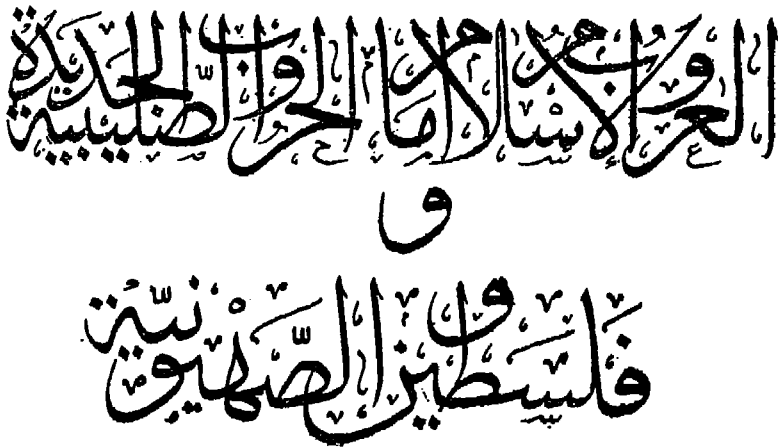 العرب والإسلام أمام الحروب الصليبية الجديدة
و
فلسطين والصهيونية